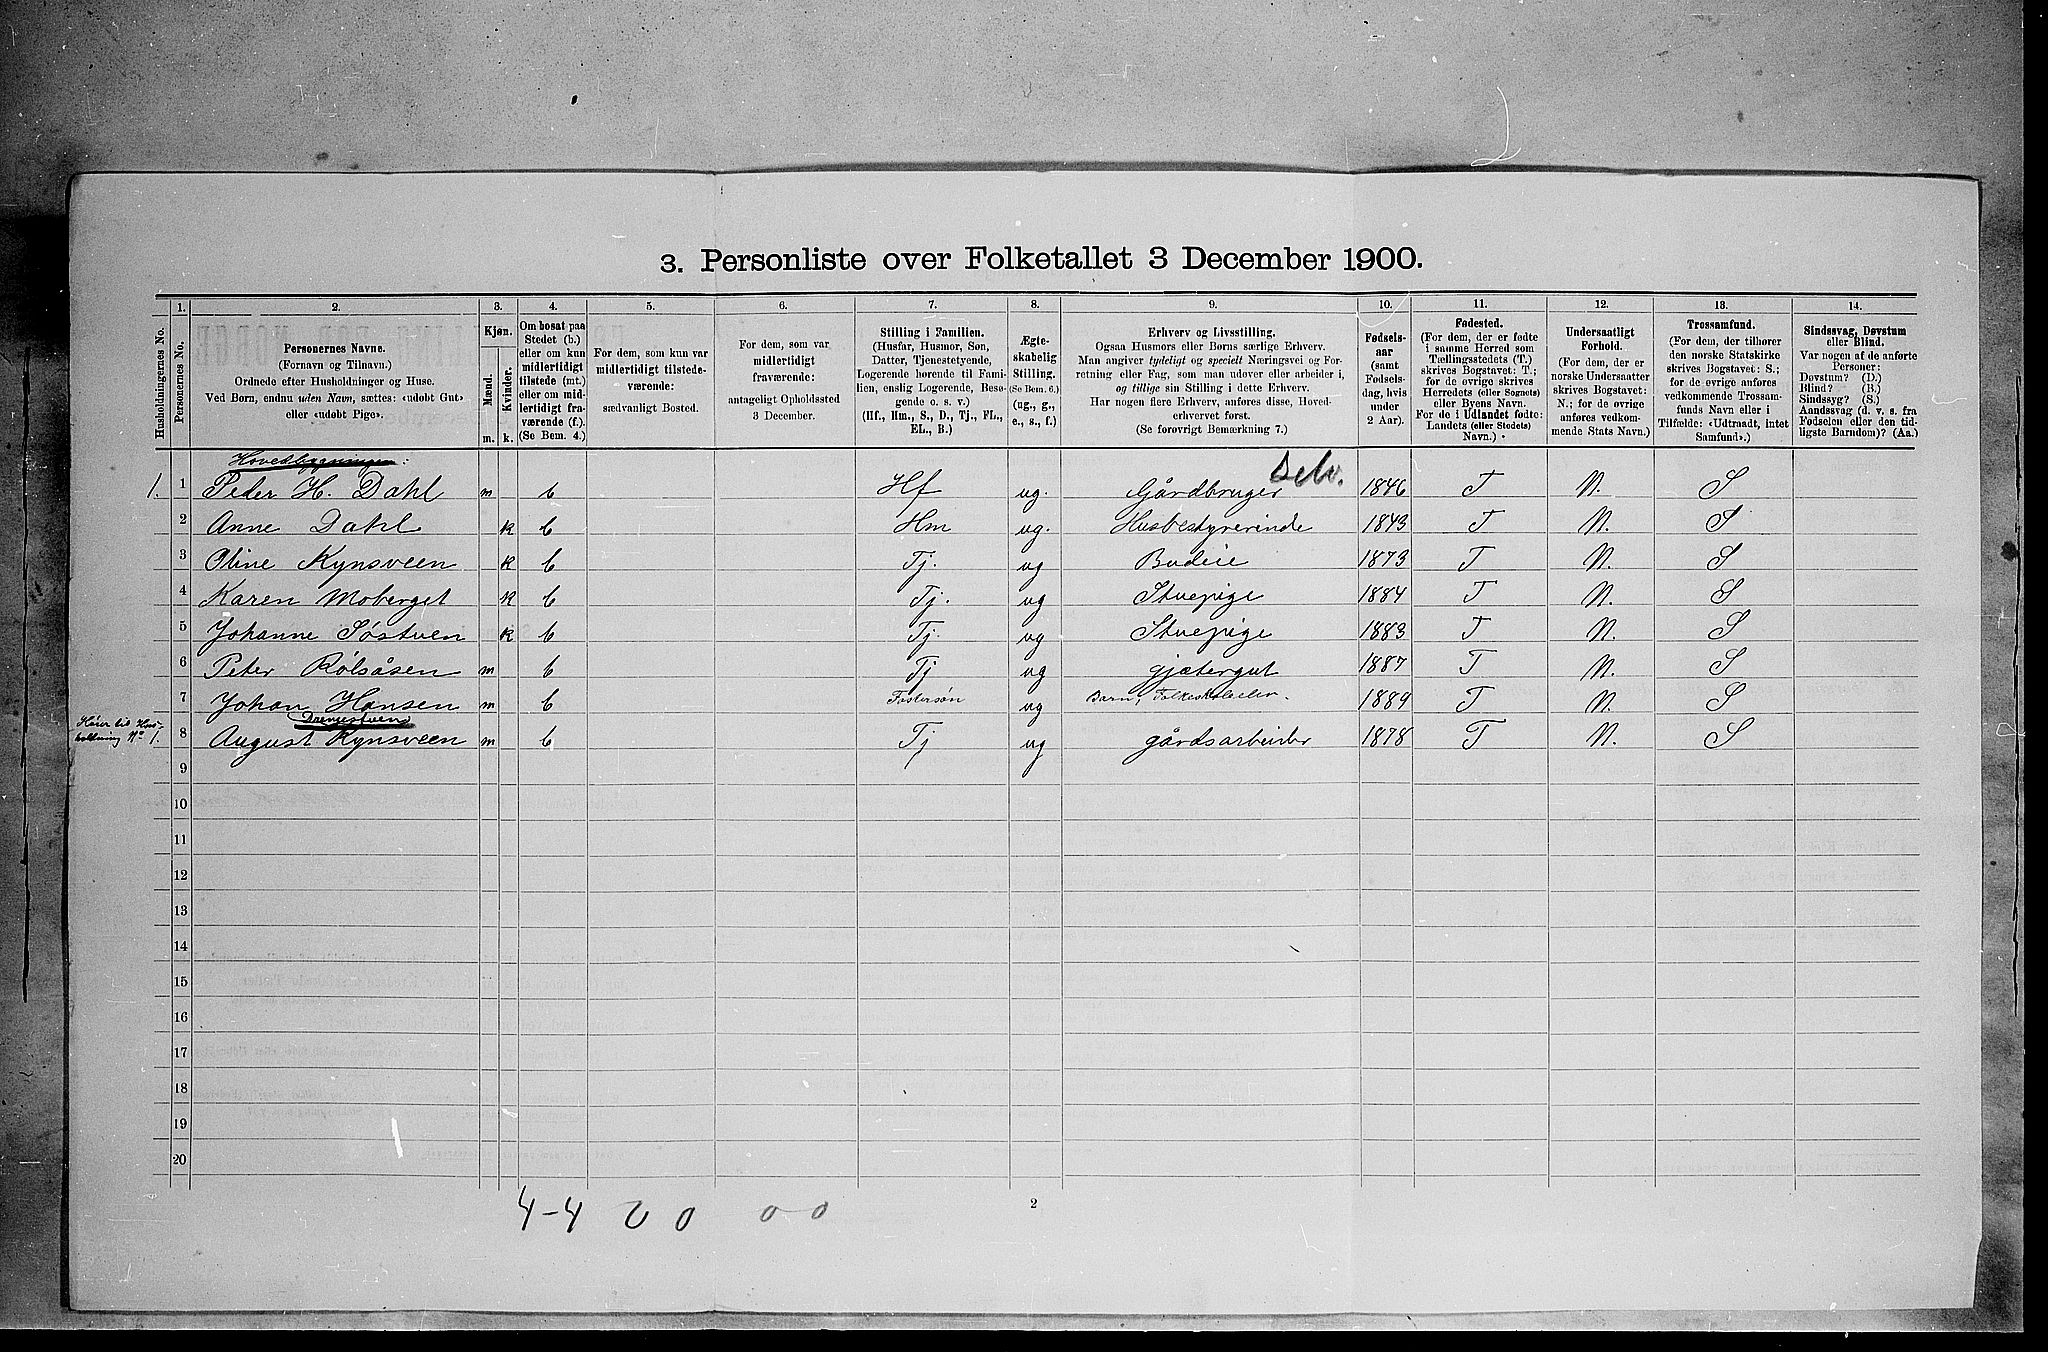 3. Personliste over Folketallet 3 December 1900.
1. 2. 3. 4. 5. 6. 7. 8. 9. 10. 11. 12. 13. 14.
Husholdningernes No.
Personernes No.
Personernes Navne.
(Fornavn og Tilnavn.)
Ordnede efter Husholdninger og Huse.
Ved Børn, endnu uden Navn, sættes: «udøbt Gut»
eller «udøbt Pige».
Kjøn.
Mænd.
Kvinder.
m. k.
Om bosat paa
Stedet (b.)
eller om kun
midlertidigt
tilstede (mt.)
eller om mid-
lertidigt fra-
værende (f.).
(Se Bem. 4.)
For dem, som kun var
midlertidigt tilstede-
værende:
sædvanligt Bosted.
For dem, som var
midlertidigt
fraværende:
antageligt Opholdssted
3 December.
Stilling i Familien.
(Husfar, Husmor, Søn,
Datter, Tjenestetyende,
Logerende hørende til Fami-
lien, enslig Logerende, Besø-
gende o. s. v.)
(Hf., Hm., S., D., Tj., FL.,
EL., B.)
Ægte-
skabelig
Stilling.
(Se Bem. 6.)
(ug., g.,
e., s., f.)
Erhverv og Livsstilling.
Ogsaa Husmors eller Børns særlige Erhverv.
Man angiver tydeligt og specielt Næringsvei og For-
retning eller Fag, som man udøver eller arbeider i,
og tillige sin Stilling i dette Erhverv.
Har nogen flere Erhverv, anføres disse, Hoved-
erhvervet først.
(Se forøvrigt Bemærkning 7.)
Fødsels-
aar
(samt
Fødsels-
dag, hvis
under
2 Aar).
Fødested.
(For dem, der er fødte
i samme Herred som
Tællingsstedets (T.)
skrives Bogstavet: T.;
for de øvrige skrives
Herredets (eller Sognets)
eller Byens Navn.
For de i Udlandet fødte:
Landets (eller Stedets)
Navn.)
Undersaatligt
Forhold.
(For dem, der er
norske Undersaatter
skrives Bogstavet:
N.; for de øvrige
anføres vedkom-
mende Stats Navn.)
Trossamfund.
(For dem, der tilhører
den norske Statskirke
skrives Bogstavet: S.;
for de øvrige anføres
vedkommende Trossam-
funds Navn eller i
Tilfælde: «Udtraadt, intet
Samfund».)
Sindssvag, Døvstum
eller Blind.
Var nogen af de anførte
Personer:
Døvstum? (D.)
Blind? (B.)
Sindssyg? (S.)
Aandssvag (d. v. s. fra
Fødselen eller den tid-
ligste Barndom)? (Aa.)
Hovedbygningen:
1. 1 Peder H. Dahl m b Hf ug. Gårdbruger Selv. 1846 T N. S
2 Anne Dahl k b Hm ug. Husbestyrerinde 1843 T N. S
3 Oline Kynsveen k b Tj. ug Budeie 1873 T N. S
4 Karen Moberget k b Tj. ug Stuepige 1884 T N. S
5 Johanne Søstuen k b Tj. ug Stuepige 1883 T N. S
6 Peter Rølsåsen m b Tj ug gjætergut 1887 T N. S
7 Johan Hansen m b Fostersøn ug Barn, Folkeskoleelev. 1889 T N. S
Drengestuen
Hører til Hus-
holdning No 1. 8 August Kynsveen m b Tj ug gårdsarbeider 1878 T N. S
9
10
11
12
13
14
15
16
17
18
19
20
4-4 0 0 0 0
2